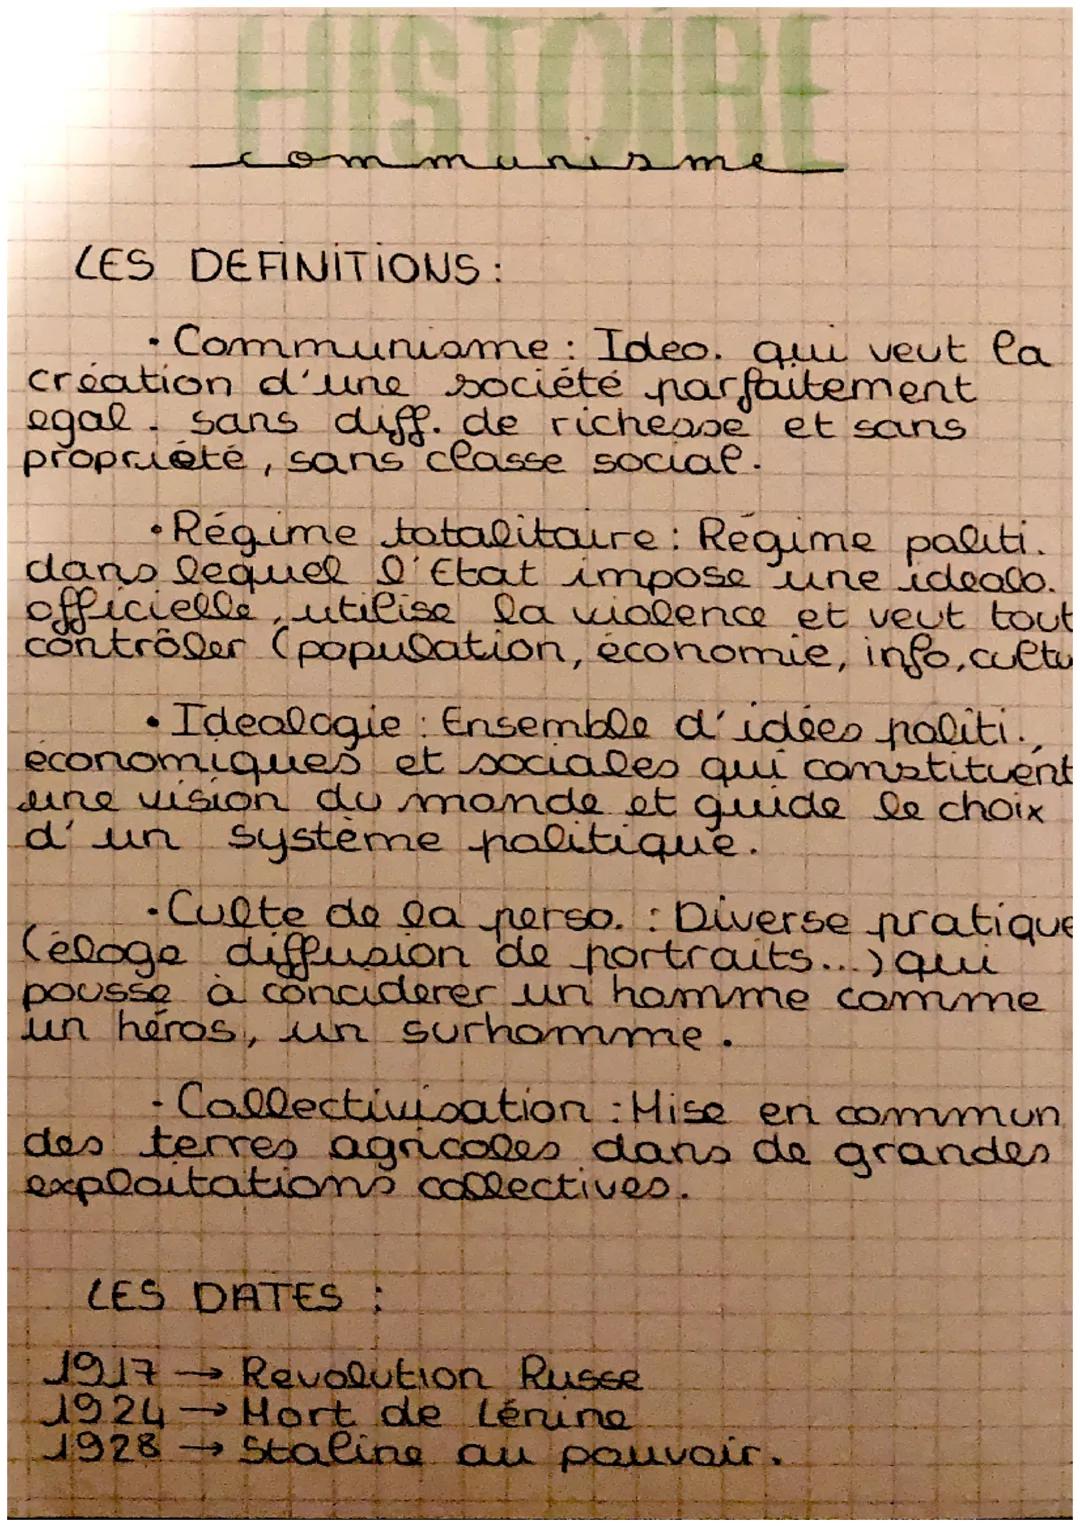 HISTOIRE
communisme
LES DEFINITIONS :
• Communisme : Ideo. qui veut la
création d'une société parfaitement
egal. sans diff. de richesse et sans
propriété, sans classe social.
• Régime totalitaire : Régime politi.
dans lequel l'Etat impose une idealo.
officielle, utilise la violence et veut tout
contrôler (population, économie, info, cultu
• Idealogie : Ensemble d'idées politi.,
économiques et sociales qui constituent
une vision du monde et guide le choix
d'un système politique.
• Culte de la perso. : Diverse pratique
(éloge diffusion de portraits...) qui
pousse à conciderer un homme comme
un héros, un surhomme.
• Collectivisation : Mise en commun
des terres agricoles dans de grandes
exploitations collectives.
LES DATES :
1917 → Revolution Russe
1924 → Mort de Lénine
1928 → Staline au pouvoir.